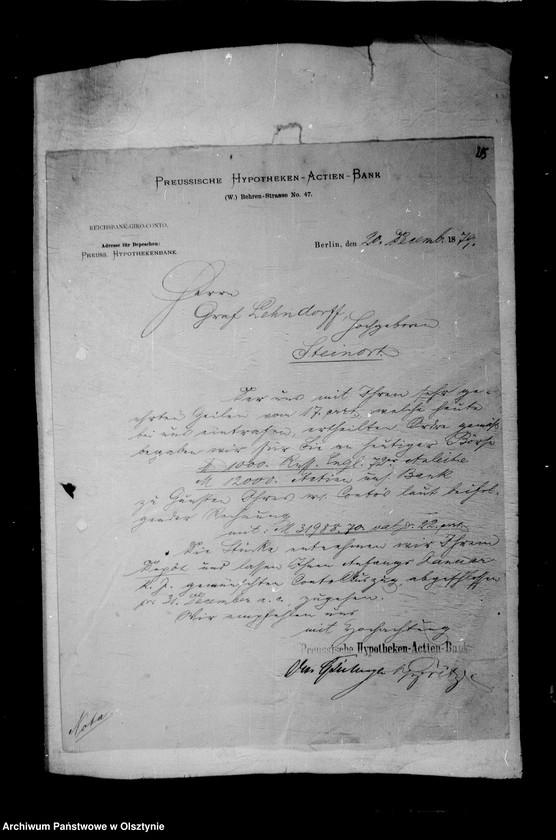 215
PREUSSISCHE HYPOTHEKEN-ACTIEN-BANK
(W.) Behren-Strasse No. 47.
REICHSBANK-GIRO-CONTO.
Adresse für Depeschen:
PREUSS. HYPOTHEKENBANK.
Berlin, den 20. Decemb. 1879.
Herrn
Graf Lehndorff, Hochgeboren
Steinort.
Der uns mit Ihren sehr ge-
ehrten Zeilen vom 17. crt., welche heute
bei uns eintrafen, ertheilten Ordre gemäß
begaben wir für Sie an heutiger Börse
£ 1000. Russ. Engl. 72r Anleihe
M 12000. Actien uns. Bank
zu Gunsten Ihres w. Contos laut beifol-
gender Rechnung
mit: M 31988.70 val. pr. 22. crt.
Die Stücke entnehmen wir Ihrem
Depôt und lassen Ihnen Anfangs Januar
k. J. gewünschten Contoauszug abgeschlossen
pr 31. December a. c. zugehen.
Wir empfehlen uns
mit Hochachtung
Preussische Hypotheken-Actien-Bank
Nota
Archiwum Państwowe w Olsztynie